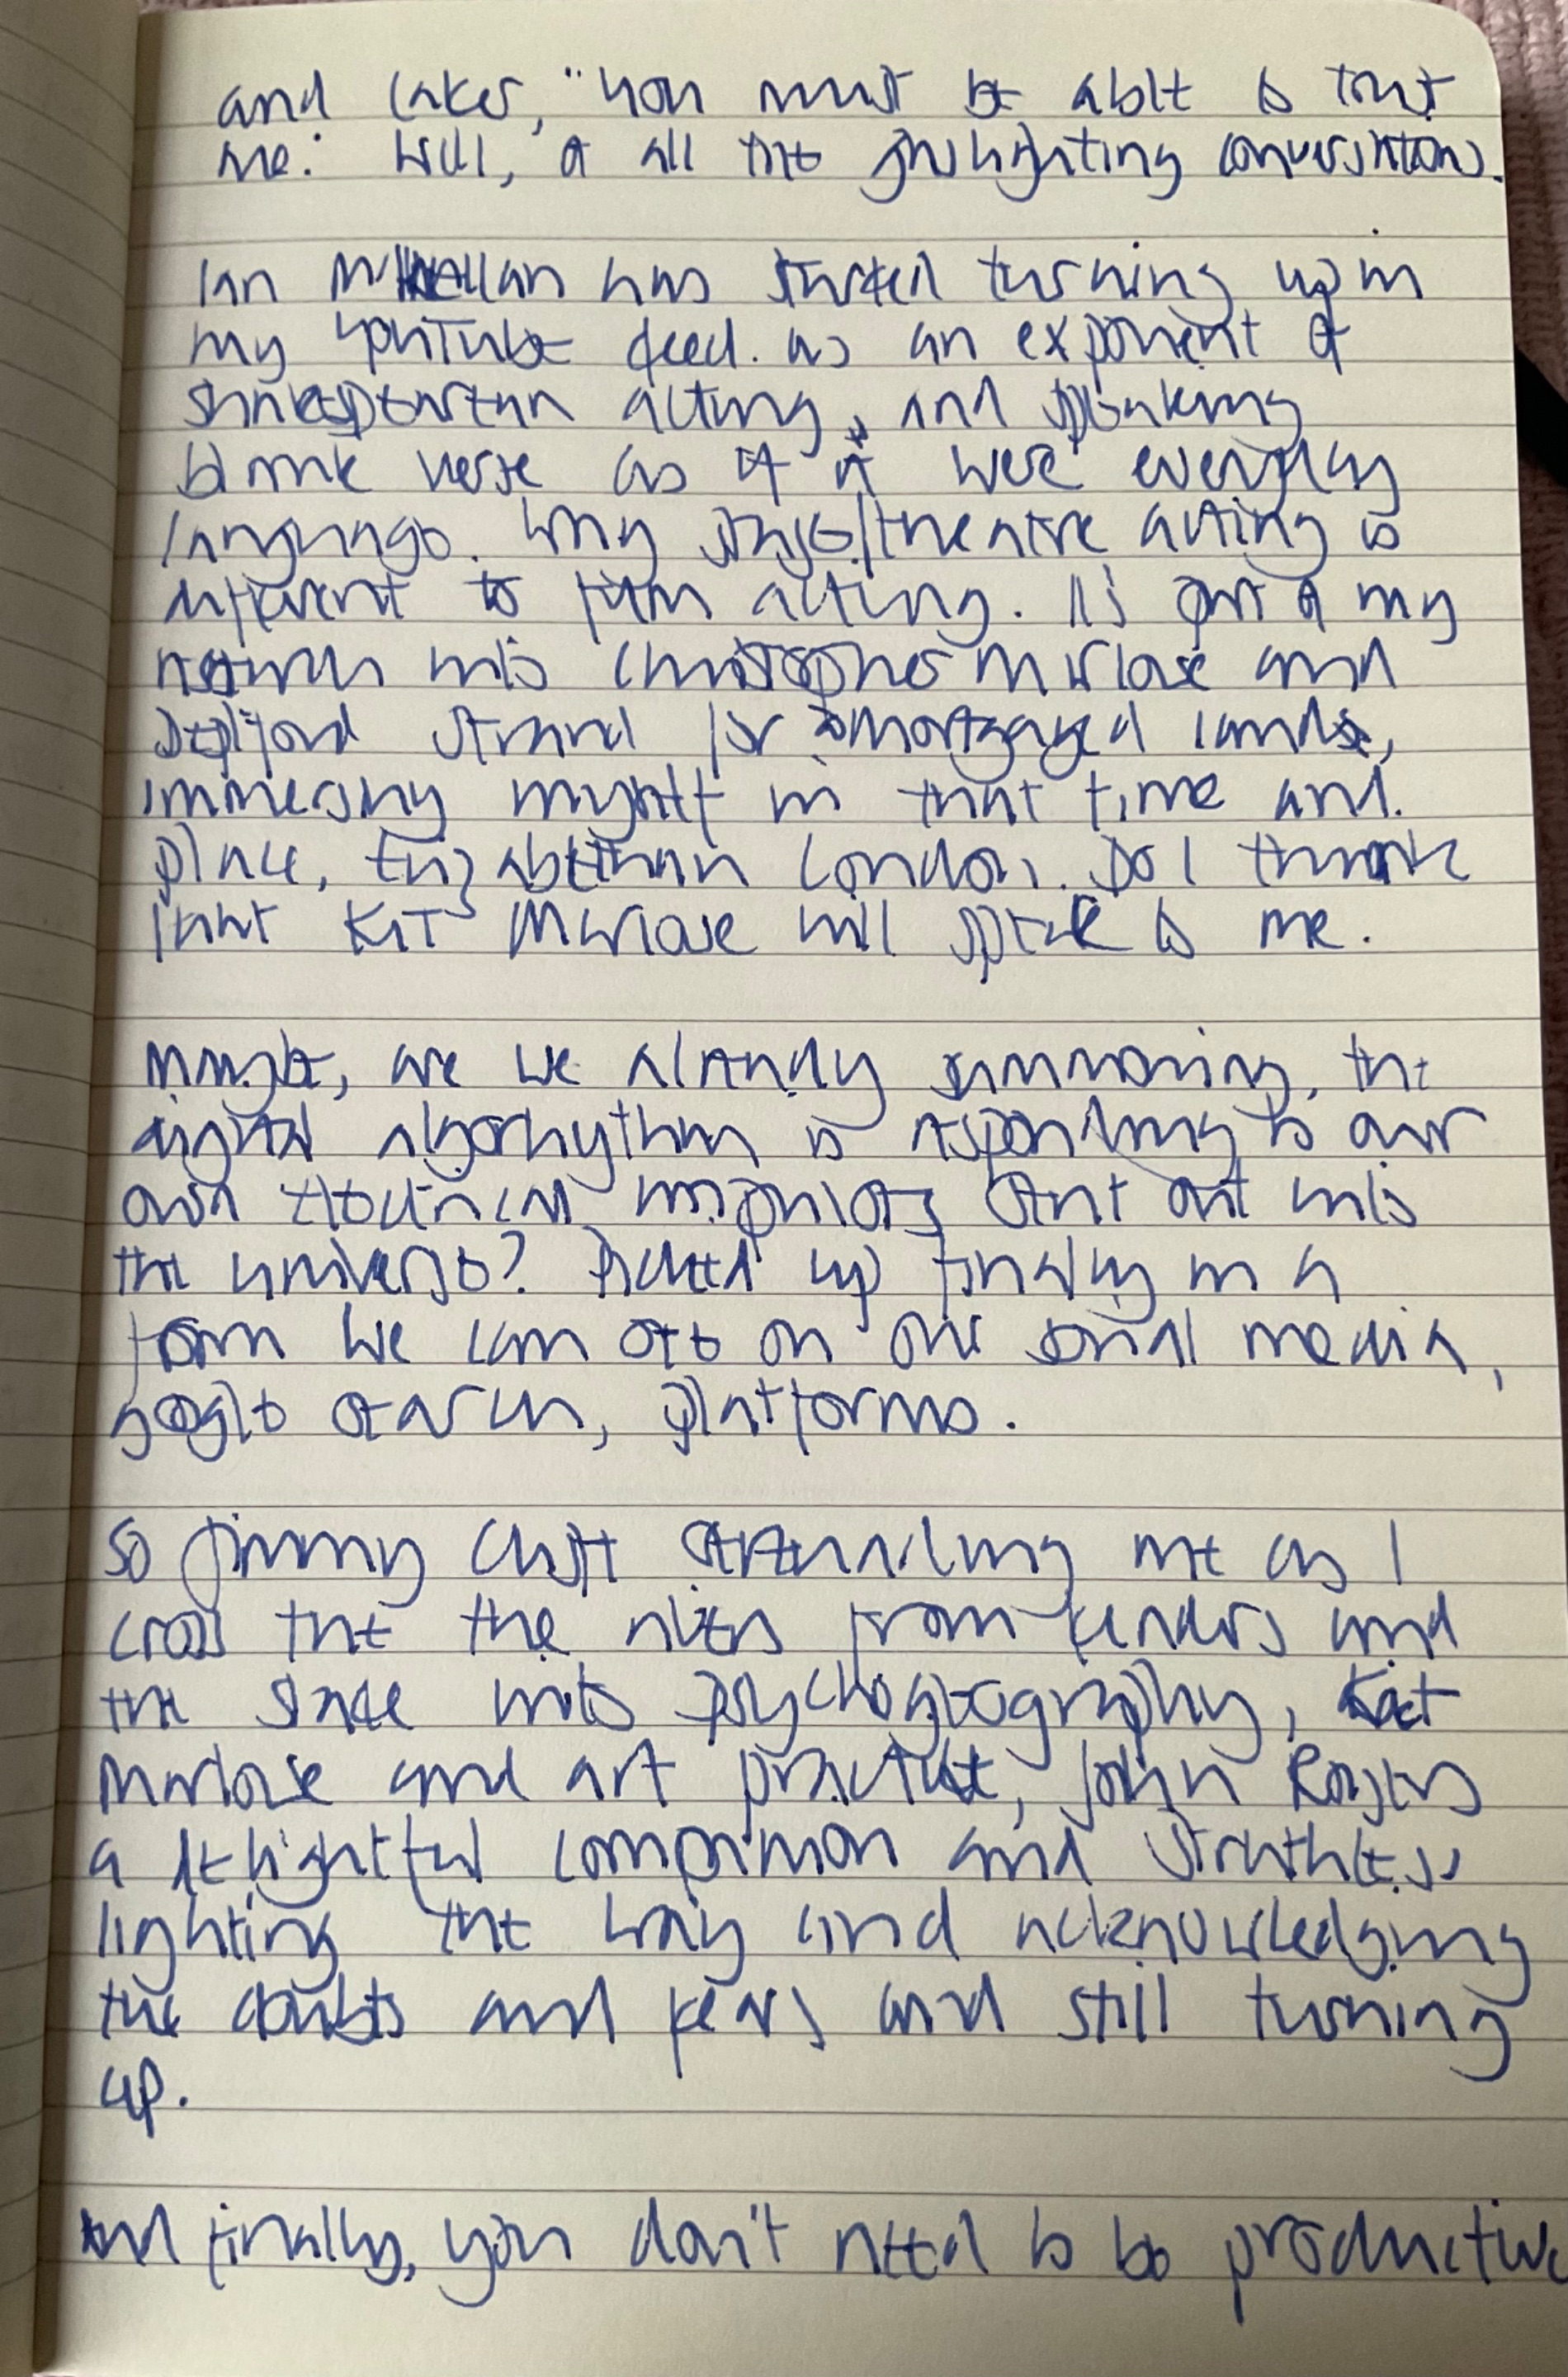 and later, "you must be able to trust
me." Well, of all the gaslighting conversations.
Ian McKellan has started turning up in
my YouTube feed. as an exponent of
Shakespearean acting, and speaking
blank verse as if it were everyday
language. Why stage/theatre acting is
different to film acting. It's part of my
research into Christopher Marlowe and
Deptford Strand for mortgaged lands,
immersing myself in that time and
place, Elizabethan London. Do I think
that Kit Marlowe will speak to me.
Maybe, are we already summoning, the
digital algorhythm is responding to our
own electrical impulses sent out into
the universe? Picked up finally in a
form we can see on our social media,
google search, platforms.
So Jimmy Cliff serenading me as I
cross the the rivers from fenders and
the state into psychogeography, Kit
Marlowe and art practice, John Rogers
a delightful companion and
lighting the way and acknowledging
the doubts and fears and still turning
up.
And finally, you don't need to be productive